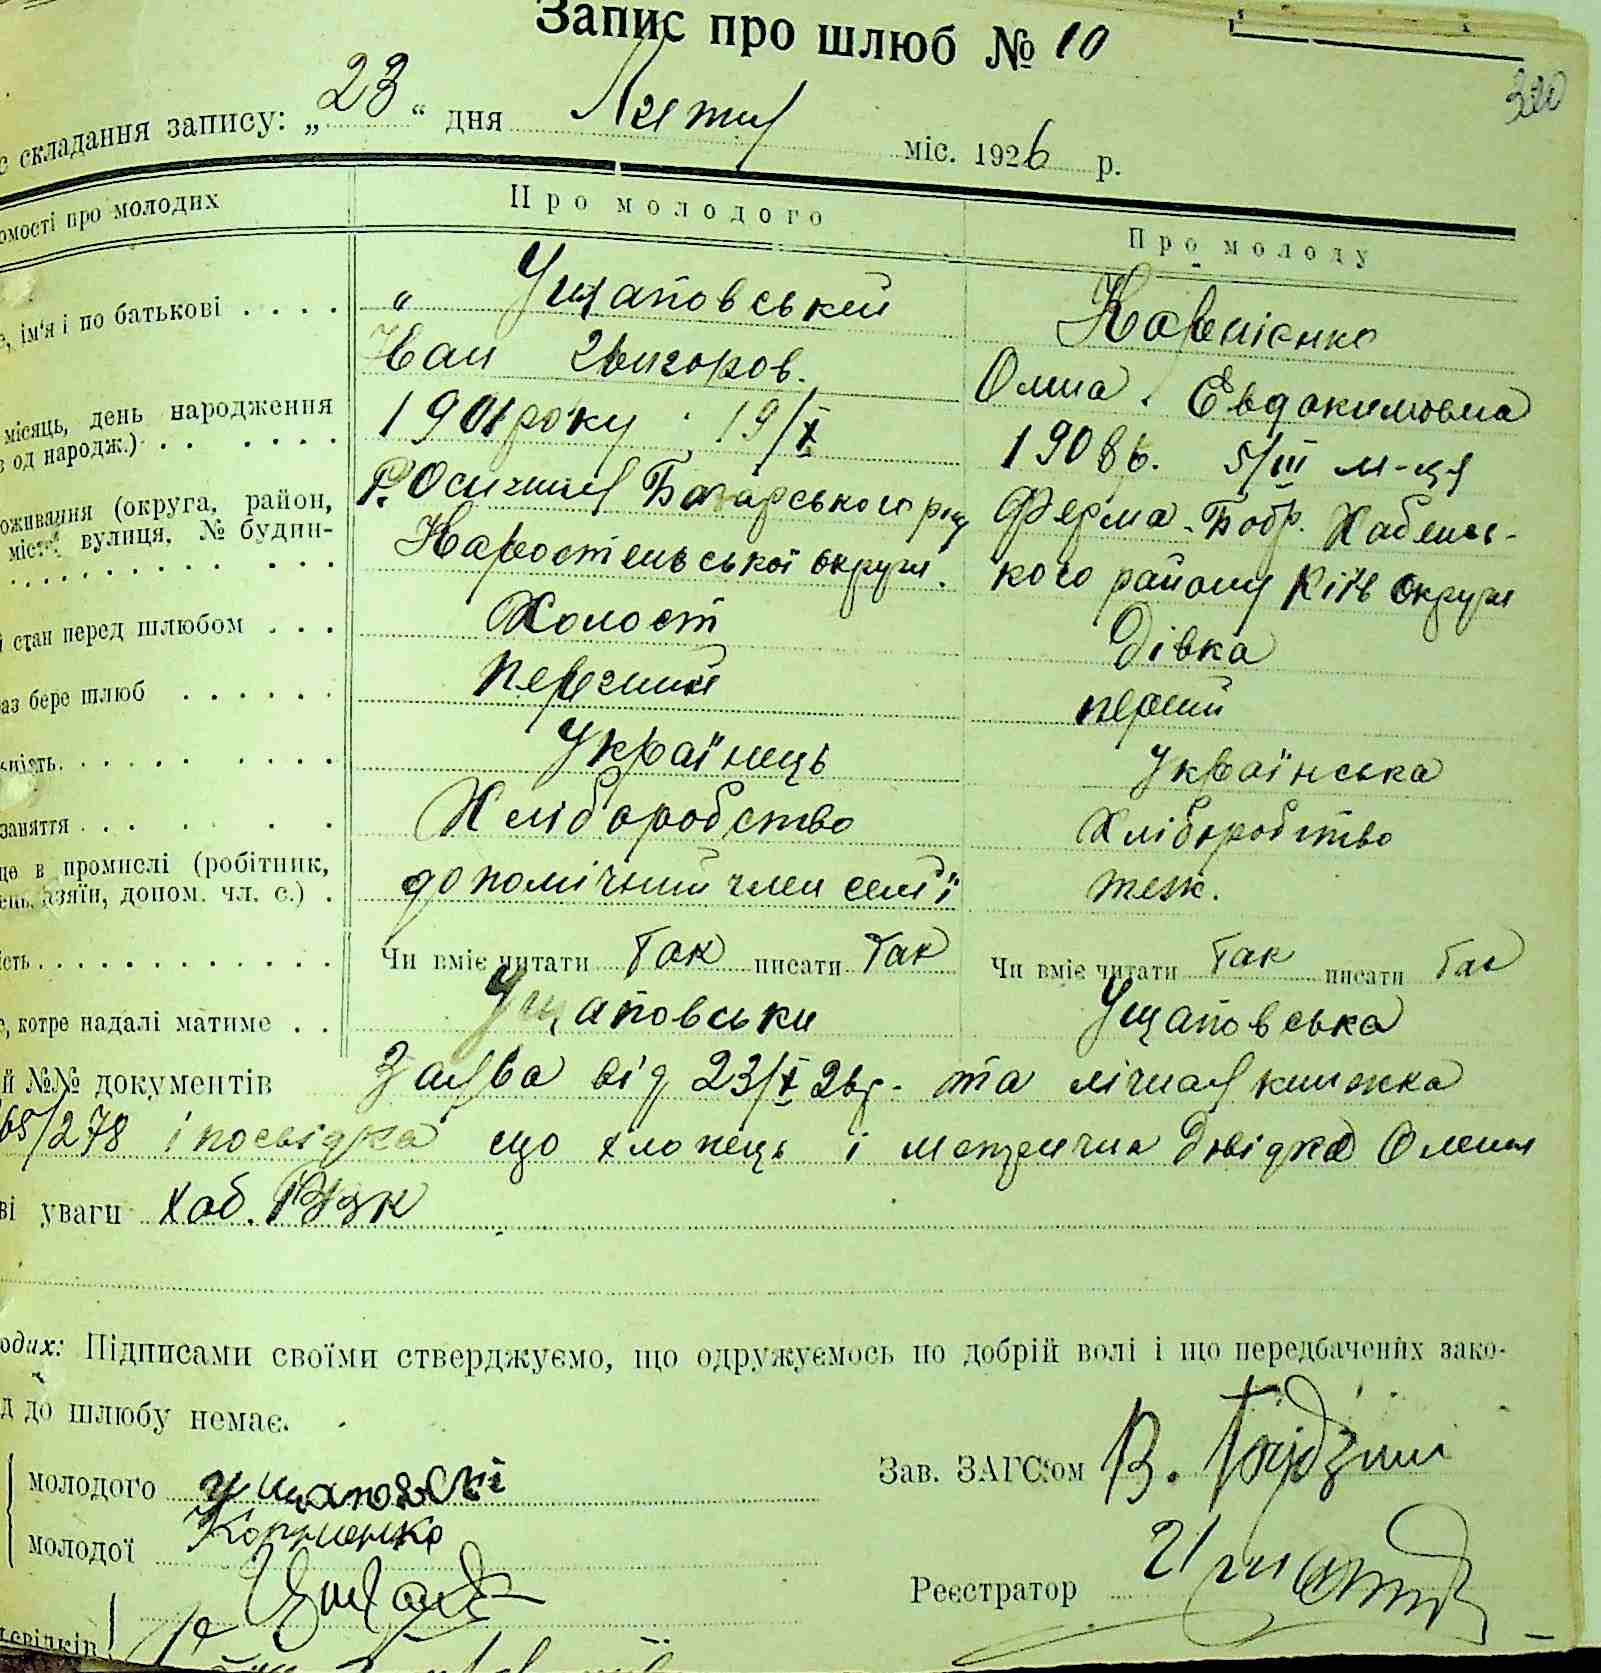 Запис про шлюб № 10
320
с складання запису: „23“ дня міс. 1926 р.
омості про молодих Про молодого Про молоду
е, ім'я і по батькові . . . . " Ущаповський Карпієнко
Іван Григоров. Олена Евдокимовна
місяць, день народження 1901 року 19/X 1908 р. 5/III м-ця
в од народж.) . . . . . .
оживання (округа, район, Осичная Базарського рну Ферма Бобр. Хабенс-
місто, вулиця, № будин- Коростенської округи. кого району Київ округи
й стан перед шлюбом . . . Холост Дівка
аз бере шлюб . . . . . . перший
ність. . . . . . . . . Українець Українська
заняття . . . . . . Хліборобство Хліборобство
це в промислі (робітник, допомічний член семї теж.
ень. азяїн, допом. чл. с.) .
ість . . . . . . . . . . . . Чи вміє читати Так писати Так Чи вміє читати Так писати Так
е, котре надалі матиме . . Ущаповськи Ущаповська
й №№ документів Заява від 23/X 26р. та лічная книжка
65/278 і посвідка що хлопець і метрична Довідка Олени
ві уваги Хаб.
одих: Підписами своїми стверджуємо, що одружуємось по добрій волі і що передбачених зако-
д до шлюбу немає.
молодого Ущаповскі Зав. ЗАГС'ом В.
молодої Корниенко
Реєстратор
свідків